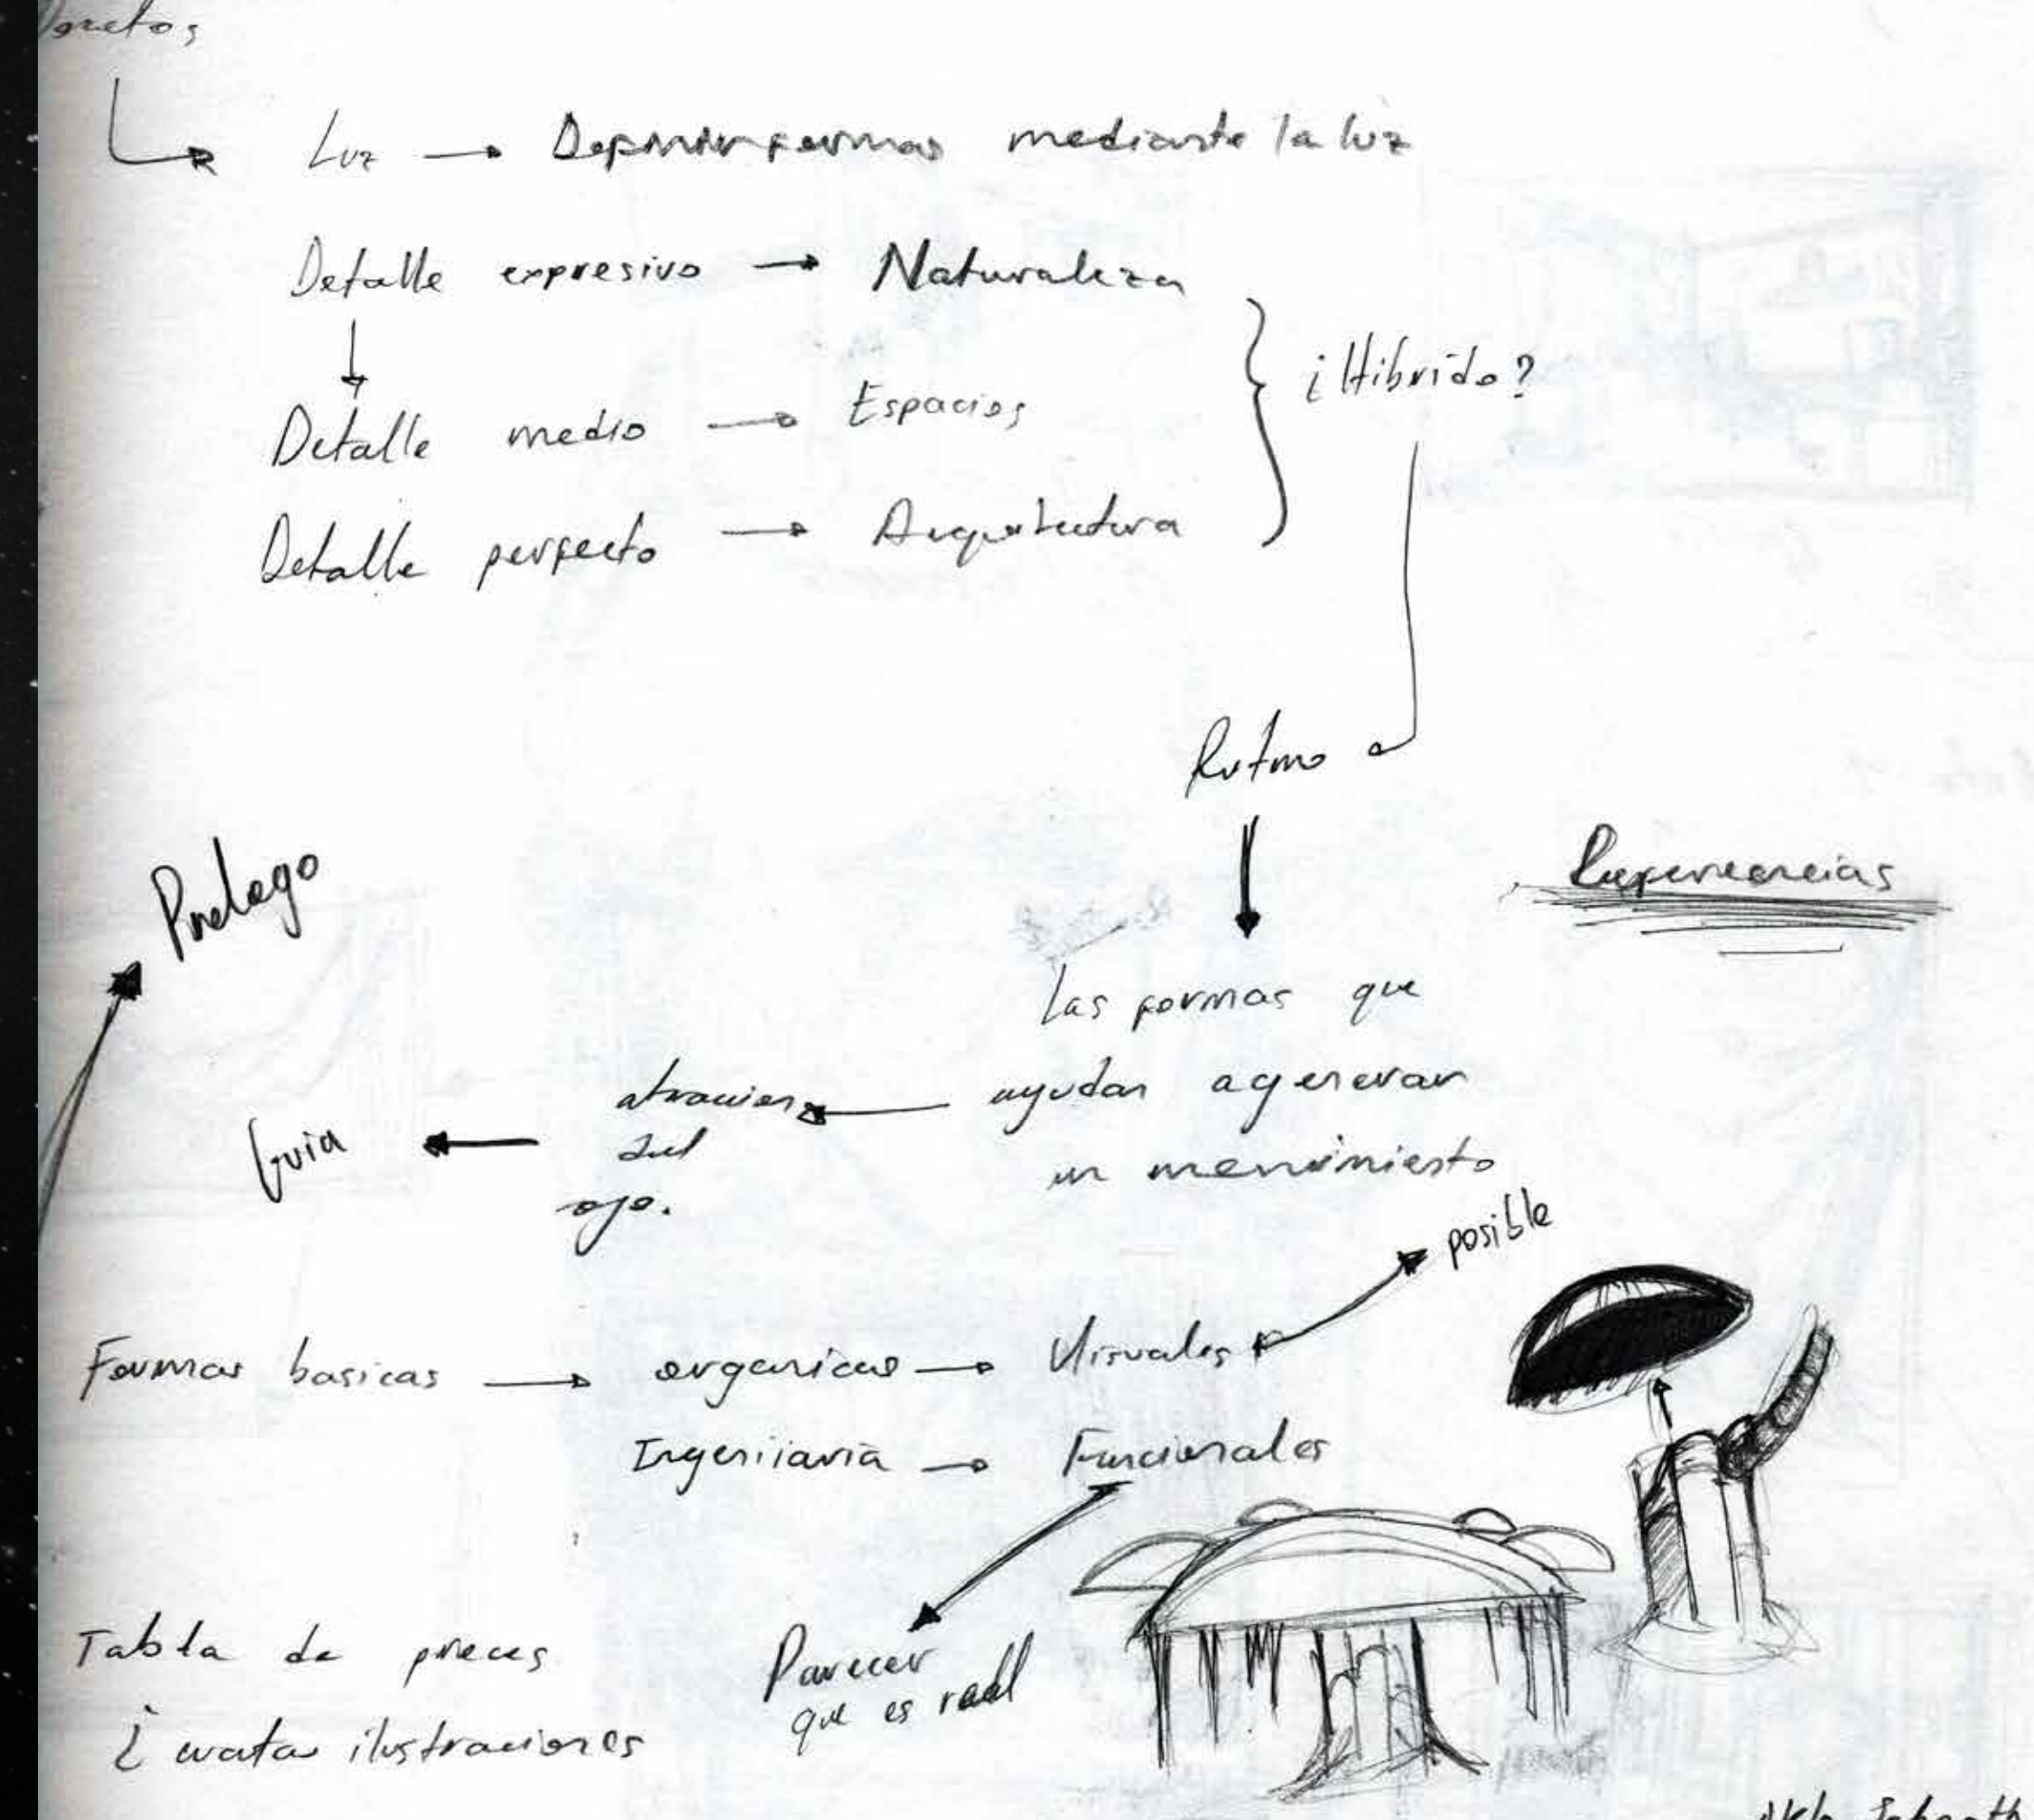 Luz → Definir formas mediante la luz
Detalle expresivo → Naturaleza
Detalle medio → Espacios
Detalle perfecto → Arquitectura
¿Hibrido?
Ritmo
Referencias
Prologo
Las formas que
ayudan a generar
un movimiento
atraccion
del
ojo.
Guia
posible
Formas basicas → organicas → Visuales
Ingeniiaria → Funcionales
Parecer
que es real
Tabla de
¿ ilustraciones